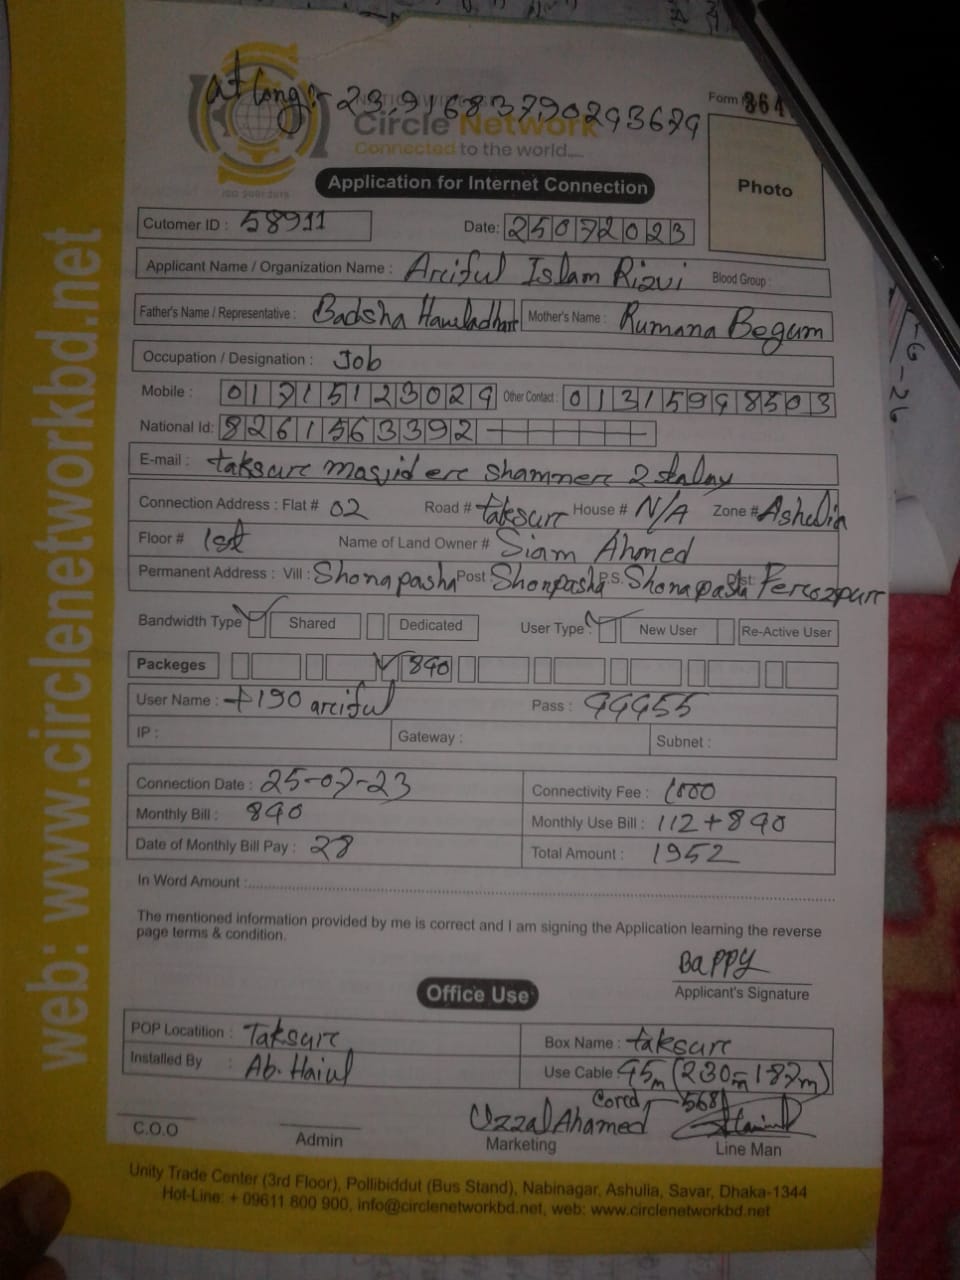 at long:- 23.91683790293679
Form 864
Circle Network
Connected to the world....
Application for Internet Connection
Photo
Cutomer ID : 58911 Date: 25072023
Applicant Name / Organization Name : Arciful Islam Rizvi Blood Group :
Father's Name / Representative : Badsha Mother's Name : Rumana Begum
Occupation / Designation : Job
Mobile : Other Contact : 01315998503
National Id: 8261563392
E-mail : taksurc masjid erc shammerc 2
Connection Address : Flat # 02 Road # taksurc House # N/A Zone # Ashulia
Floor # 1st Name of Land Owner # Siam Ahmed
Permanent Address : Vill : Shonapasha Post : Shonpasha P.S. Shonapasha Dist: Percozpurc
Bandwidth Type Shared Dedicated User Type : New User Re-Active User
Packeges 840
User Name : +190 arciful Pass : 99955
IP : Gateway : Subnet :
Connection Date : 25-07-23 Connectivity Fee : 1000
Monthly Bill : 840 Monthly Use Bill : 112+840
Date of Monthly Bill Pay : 28 Total Amount : 1952
In Word Amount :
The mentioned information provided by me is correct and I am signing the Application learning the reverse
page terms & condition.
BaPPY
Applicant's Signature
Office Use
POP Locatition : Taksurc Box Name : taksurc
Installed By : Ab. Haiul Use Cable 45m (230m-187m)
Cored 568
Uzzal Ahamed
C.O.O Admin Marketing Line Man
Unity Trade Center (3rd Floor), Pollibiddut (Bus Stand), Nabinagar, Ashulia, Savar, Dhaka-1344
Hot-Line: + 09611 800 900, info@circlenetworkbd.net, web: www.circlenetworkbd.net
web: www.circlenetworkbd.net